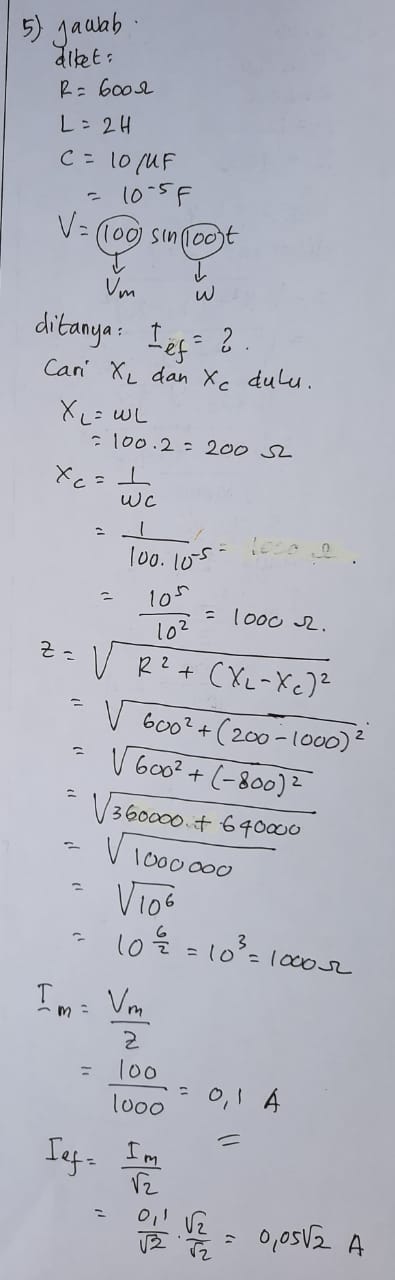 5) Jawab.
diket:
R = 600Ω
L = 2H
C = 10 μF
= 10⁻⁵ F
V = 100 sin 100t
↓ ↓
Vm w
ditanya: Ief = ?.
Cari XL dan Xc dulu.
XL = wL
= 100.2 = 200 Ω
Xc = 1/wC
= 1/100.10⁻⁵ = 1000 Ω.
= 10⁵/10² = 1000 Ω.
Z = √R² + (XL - Xc)²
= √600² + (200 - 1000)²
= √600² + (-800)²
= √360000 + 640000
= √1000000
= √10⁶
= 10^6/2 = 10³ = 1000 Ω
Im = Vm/Z
= 100/1000 = 0,1 A
Ief = Im/√2
= 0,1/√2 . √2/√2 = 0,05√2 A